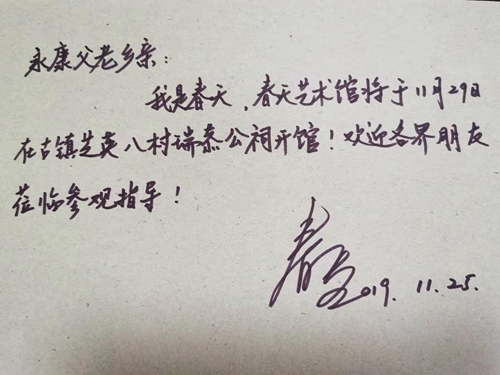 永康父老乡亲：
我是春天，春天艺术馆将于11月29日
在古镇芝英八村瑞泰公祠开馆！欢迎各界朋友
莅临参观指导！
春天
2019.11.25.